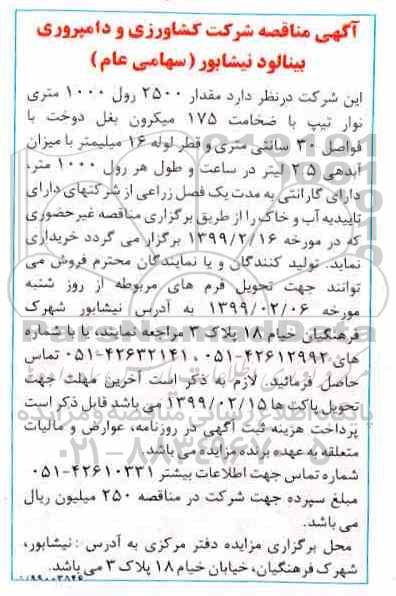 آگهی مناقصه شرکت کشاورزی و دامپروری
بینالود نیشابور (سهامی عام)
این شرکت درنظر دارد مقدار ۲۵۰۰ رول ۱۰۰۰ متری
نوار تیپ با ضخامت ۱۷۵ میکرون بغل دوخت با
فواصل ۳۰ سانتی متری و قطر لوله ۱۶ میلیمتر با میزان
آبدهی ۲.۵ لیتر در ساعت و طول هر رول ۱۰۰۰ متر،
دارای گارانتی به مدت یک فصل زراعی از شرکتهای دارای
تاییدیه آب و خاک را از طریق برگزاری مناقصه غیرحضوری
که در مورخه ۱۳۹۹/۲/۱۶ برگزار می گردد خریداری
نماید. تولید کنندگان و یا نمایندگان محترم فروش می
توانند جهت تحویل فرم های مربوطه از روز شنبه
مورخه ۱۳۹۹/۰۲/۰۶ به آدرس نیشابور شهرک
فرهنگیان خیام ۱۸ پلاک ۳ مراجعه نمایند، یا با شماره
های ۴۲۶۱۲۹۹۲-۰۵۱ ، ۴۲۶۳۲۱۴۱-۰۵۱ تماس
حاصل فرمائید. لازم به ذکر است آخرین مهلت جهت
تحویل پاکت ها ۱۳۹۹/۰۲/۱۵ می باشد قابل ذکر است
پرداخت هزینه ثبت آگهی در روزنامه، عوارض و مالیات
متعلقه به عهده برنده مزایده می باشد.
شماره تماس جهت اطلاعات بیشتر ۴۲۶۱۰۳۳۱-۰۵۱
مبلغ سپرده جهت شرکت در مناقصه ۲۵۰ میلیون ریال
می باشد.
محل برگزاری مزایده دفتر مرکزی به آدرس : نیشابور،
شهرک فرهنگیان، خیابان خیام ۱۸ پلاک ۳ می باشد.
۹۹۰۰۳۸۴۶/